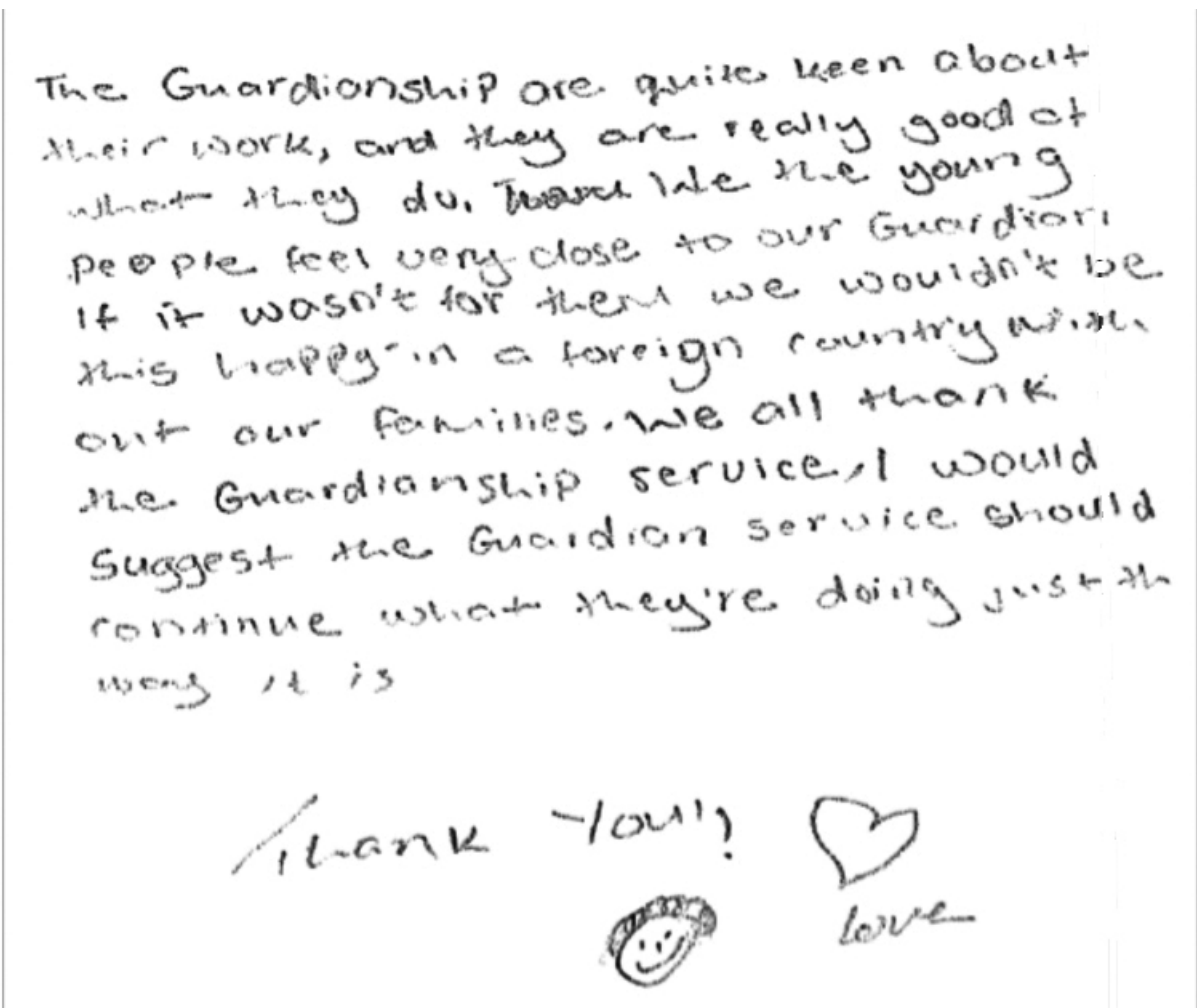 The Guardianship are quite keen about
their work, and they are really good at
what they do. We the young
people feel very close to our Guardian.
If it wasn't for them we wouldn't be
this happy in a foreign country with
out our families. We all thank
the Guardianship service, I would
Suggest the Guardian service should
continue what they're doing just th
way it is
Thank You!!
love